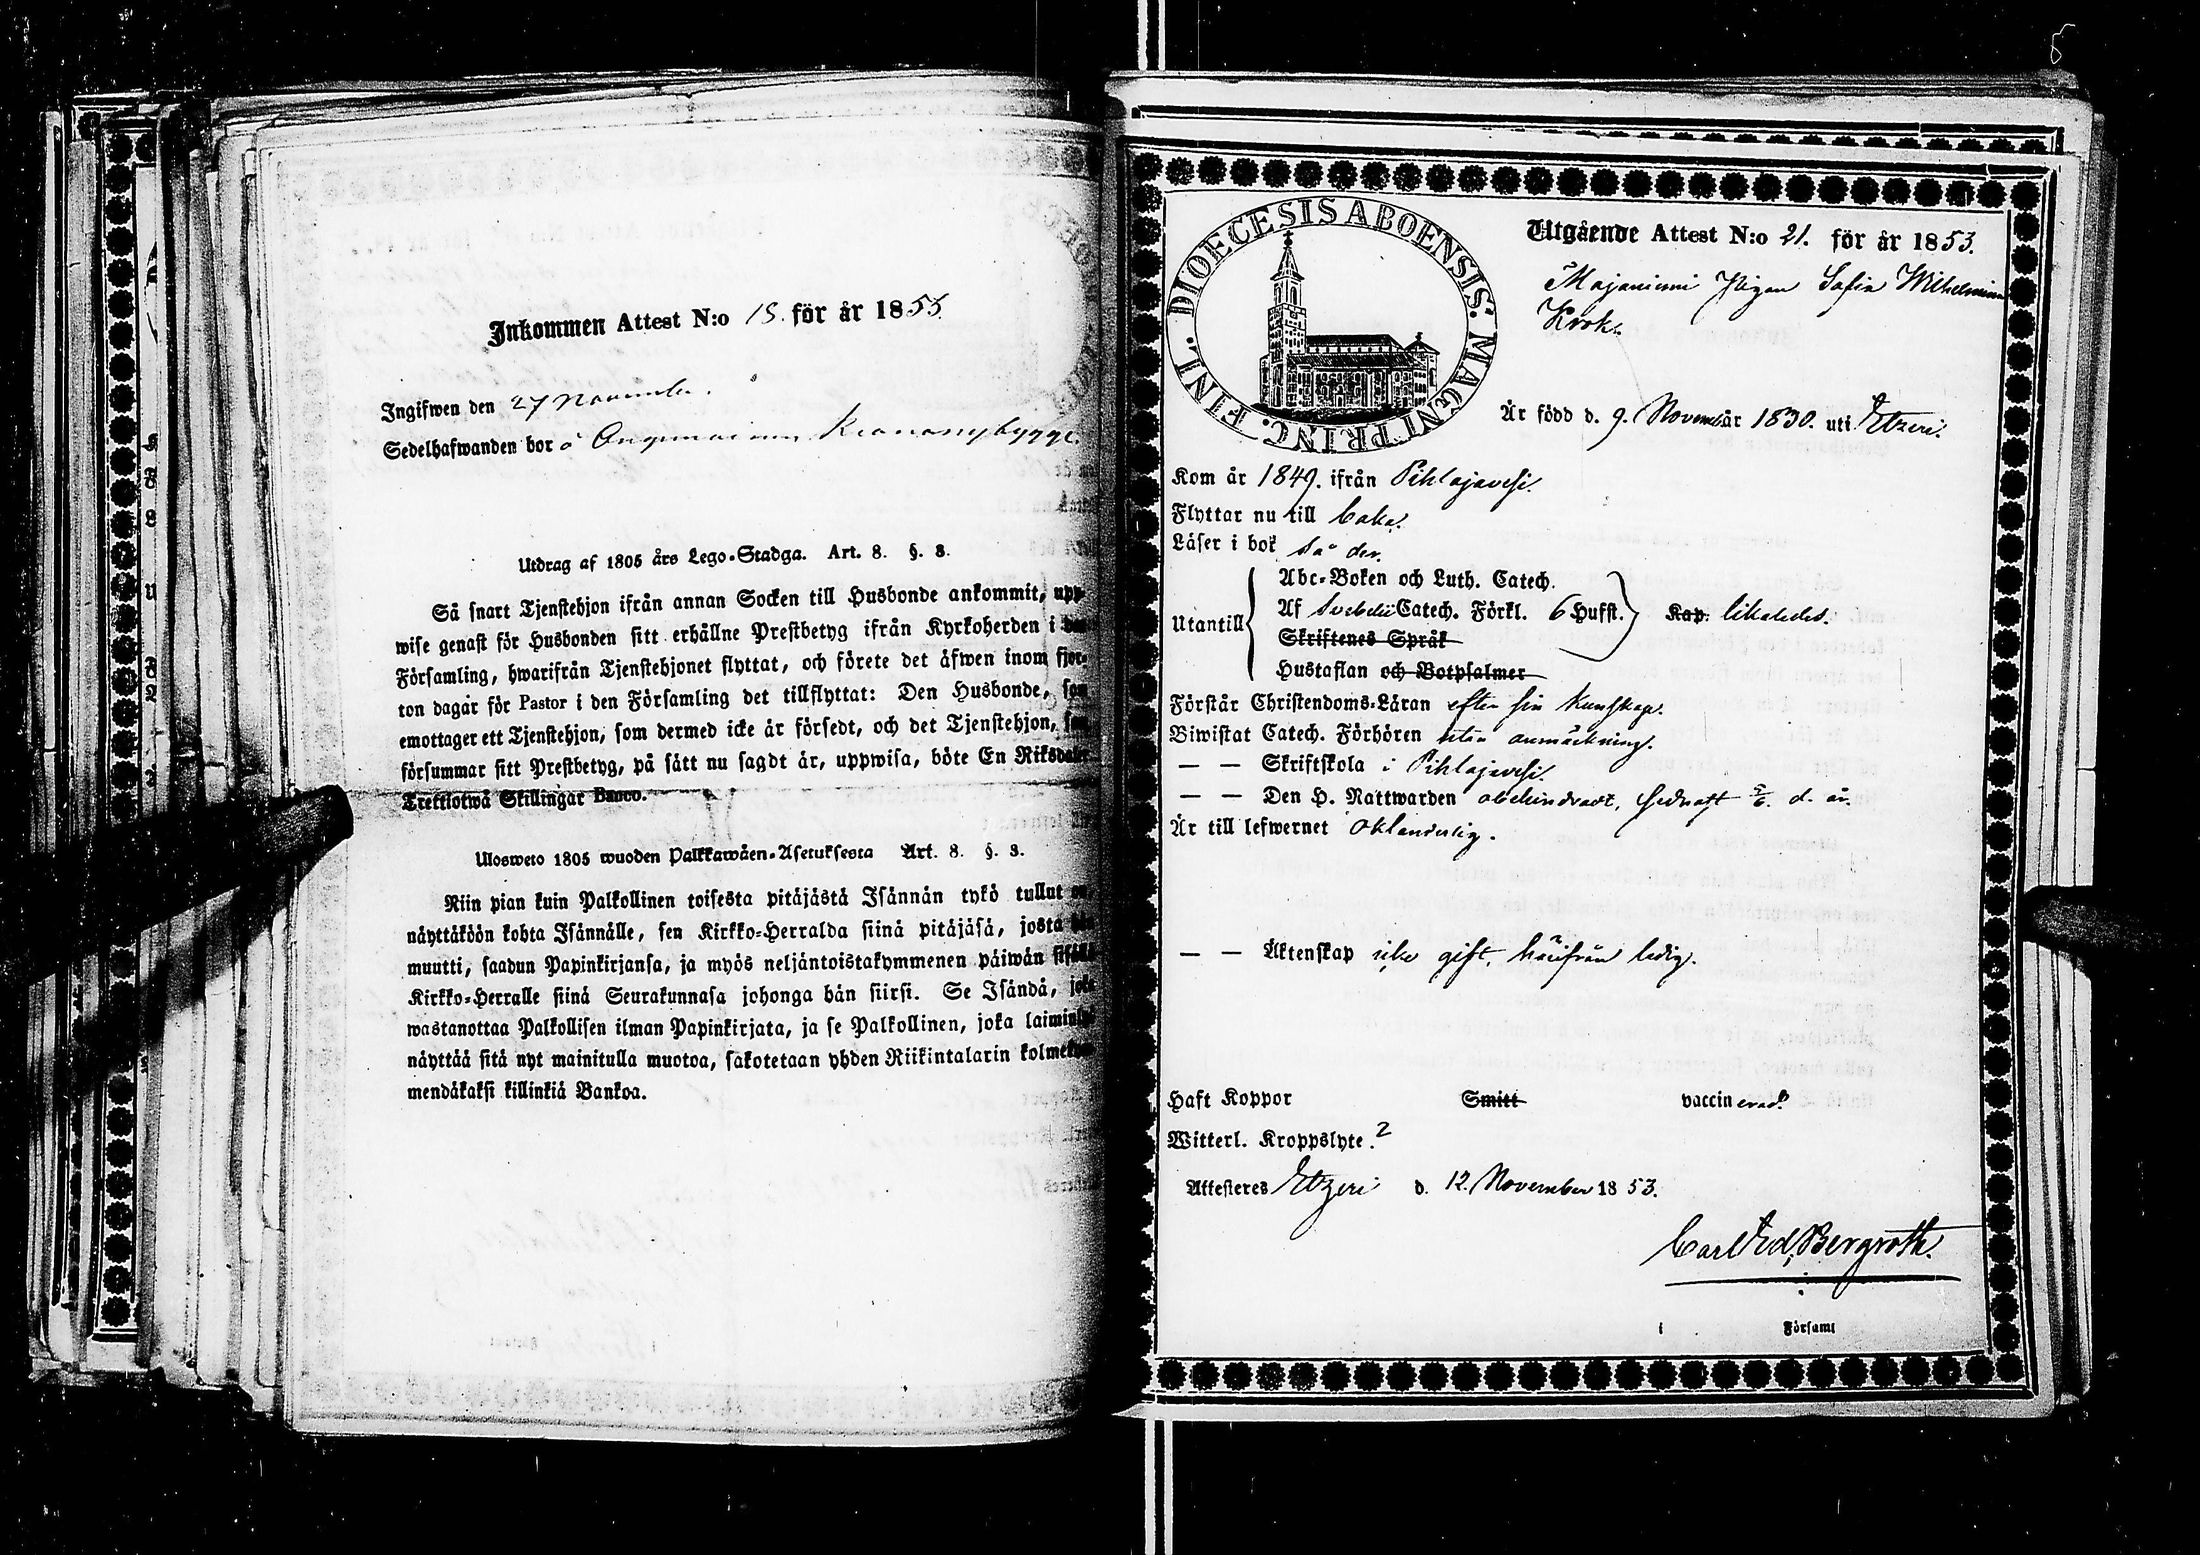 Inkommen Attest N:o 18. för år 1855.
Ingifwen den 27 November.
Sedelhafwanden bor å Kronenybygge.
Utdrag af 1805 års Lego-Stadga. Art. 8. §. 3.
Så snart Tjenstehjon ifrån annan Socken till Husbonde ankommit, upp-
wise genast för Husbonden sitt erhållne Prestbetyg ifrån Kyrkoherden i
Församling, hwarifrån Tjenstehjonet flyttat, och förete det äfwen inom fjor-
ton dagar för Pastor i den Församling det tillflyttat: Den Husbonde, som
emottager ett Tjenstehjon, som dermed icke är försedt, och det Tjenstehjon, som
försummar sitt Prestbetyg, på sätt nu sagdt är, uppwisa, böte En Riksdaler
Trettiotwå Skillingar Banco.
Ulosweto 1805 wuoden Palkkawäen-Asetuksesta Art. 8. §. 3.
Niin pian kuin Palkollinen toisesta pitäjästä Isännän tykö tullut on,
näyttäköön kohta Isännälle, sen Kirkko-Herralda siinä pitäjäsä, josta hän
muutti, saadun Papinkirjansa, ja myös neljäntoistakymmenen päiwän sisällä
Kirkko-Herralle siinä Seurakunnasa johonga hän siirsi. Se Isändä, joka
wastanottaa Palkollisen ilman Papinkirjata, ja se Palkollinen, joka laiminlyö
näyttää sitä nyt mainitulla muotoa, sakotetaan yhden Riikintalarin kolmekym-
mendäkaksi killinkiä Bankoa.
5
FINL. DIOECESIS ABOENSIS. MAGNI PRINC.
Utgående Attest N:o 21. för år 1853.
Majaniemi Pigan Sofia Wilhelmina
Krok.
Är född d. 9. November år 1830. uti Etzeri.
Kom år 1849. ifrån Pihlajavesi.
Flyttar nu till
Läser i bok
Abc-Boken och Luth. Catech.
Utantill Af Svebelii Catech. Förkl. 6 Hufst. Kap. likaledes.
Skriftenes Språk
Hustaflan och Botpsalmer
Förstår Christendoms-Läran efter sin kunskap.
Biwistat Catech. Förhören utan anmärkning.
— — Skriftskola i Pihlajavesi.
— — Den H. Nattwarden obehindradt, sednast d. år.
Är till lefwernet oklanderlig.
— — Äktenskap icke gift, härifrån ledig.
Haft Koppor Smitt vaccinerad?
Witterl. Kroppslyte. ?
Attesteres Etzeri d. 12. November 1853.
Carl Ed. Bergroth.
i Församl